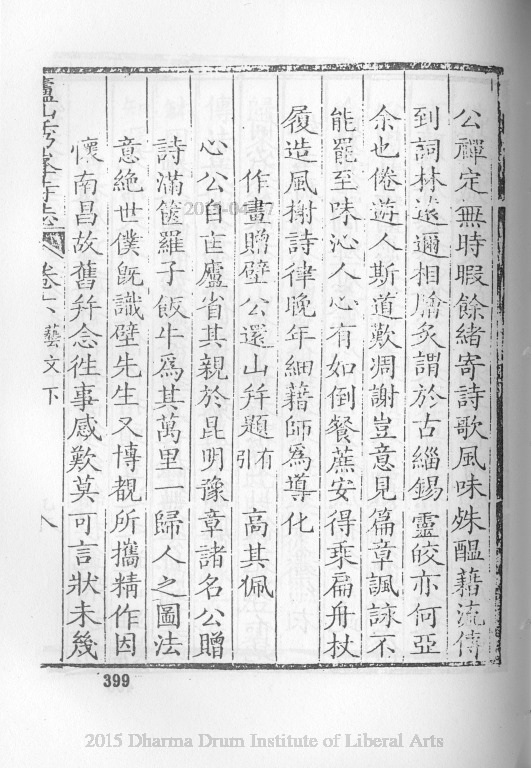 公禪定無時暇餘緒寄詩歌風味殊醞藉流傳
到詞林遠邇相膾炙謂於古緇錫靈皎亦何亞
余也倦遊人斯道歎凋謝豈意見篇章諷詠不
能罷至味沁人心有如倒餐蔗安得乘扁舟杖
履造風榭詩律晚年細藉師為導化
作畫贈壁公還山并題有引 高其佩
心公自匡廬省其親於昆明豫章諸名公贈
詩滿篋羅子飯牛為其萬里一歸人之圖法
意絕世僕既識壁先生又博覩所攜精作因
懷南昌故舊并念徃事感歎莫可言狀未幾
廬山 峯寺志 卷六 藝文下 八
399
2015 Dharma Drum Institute of Liberal Arts